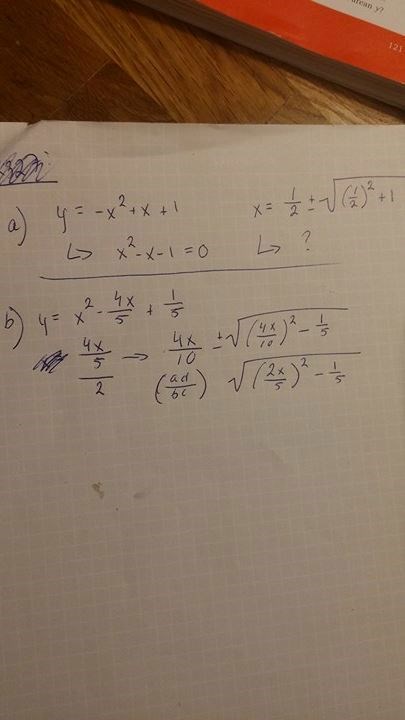 arean y?
121
a) y = -x² + x + 1    x = 1/2 ± √((1/2)² + 1
↳ x² - x - 1 = 0    ↳ ?
b) y = x² - 4x/5 + 1/5
4x/5/2 → 4x/10 ± √((4x/10)² - 1/5
(ad/bc) √((2x/5)² - 1/5